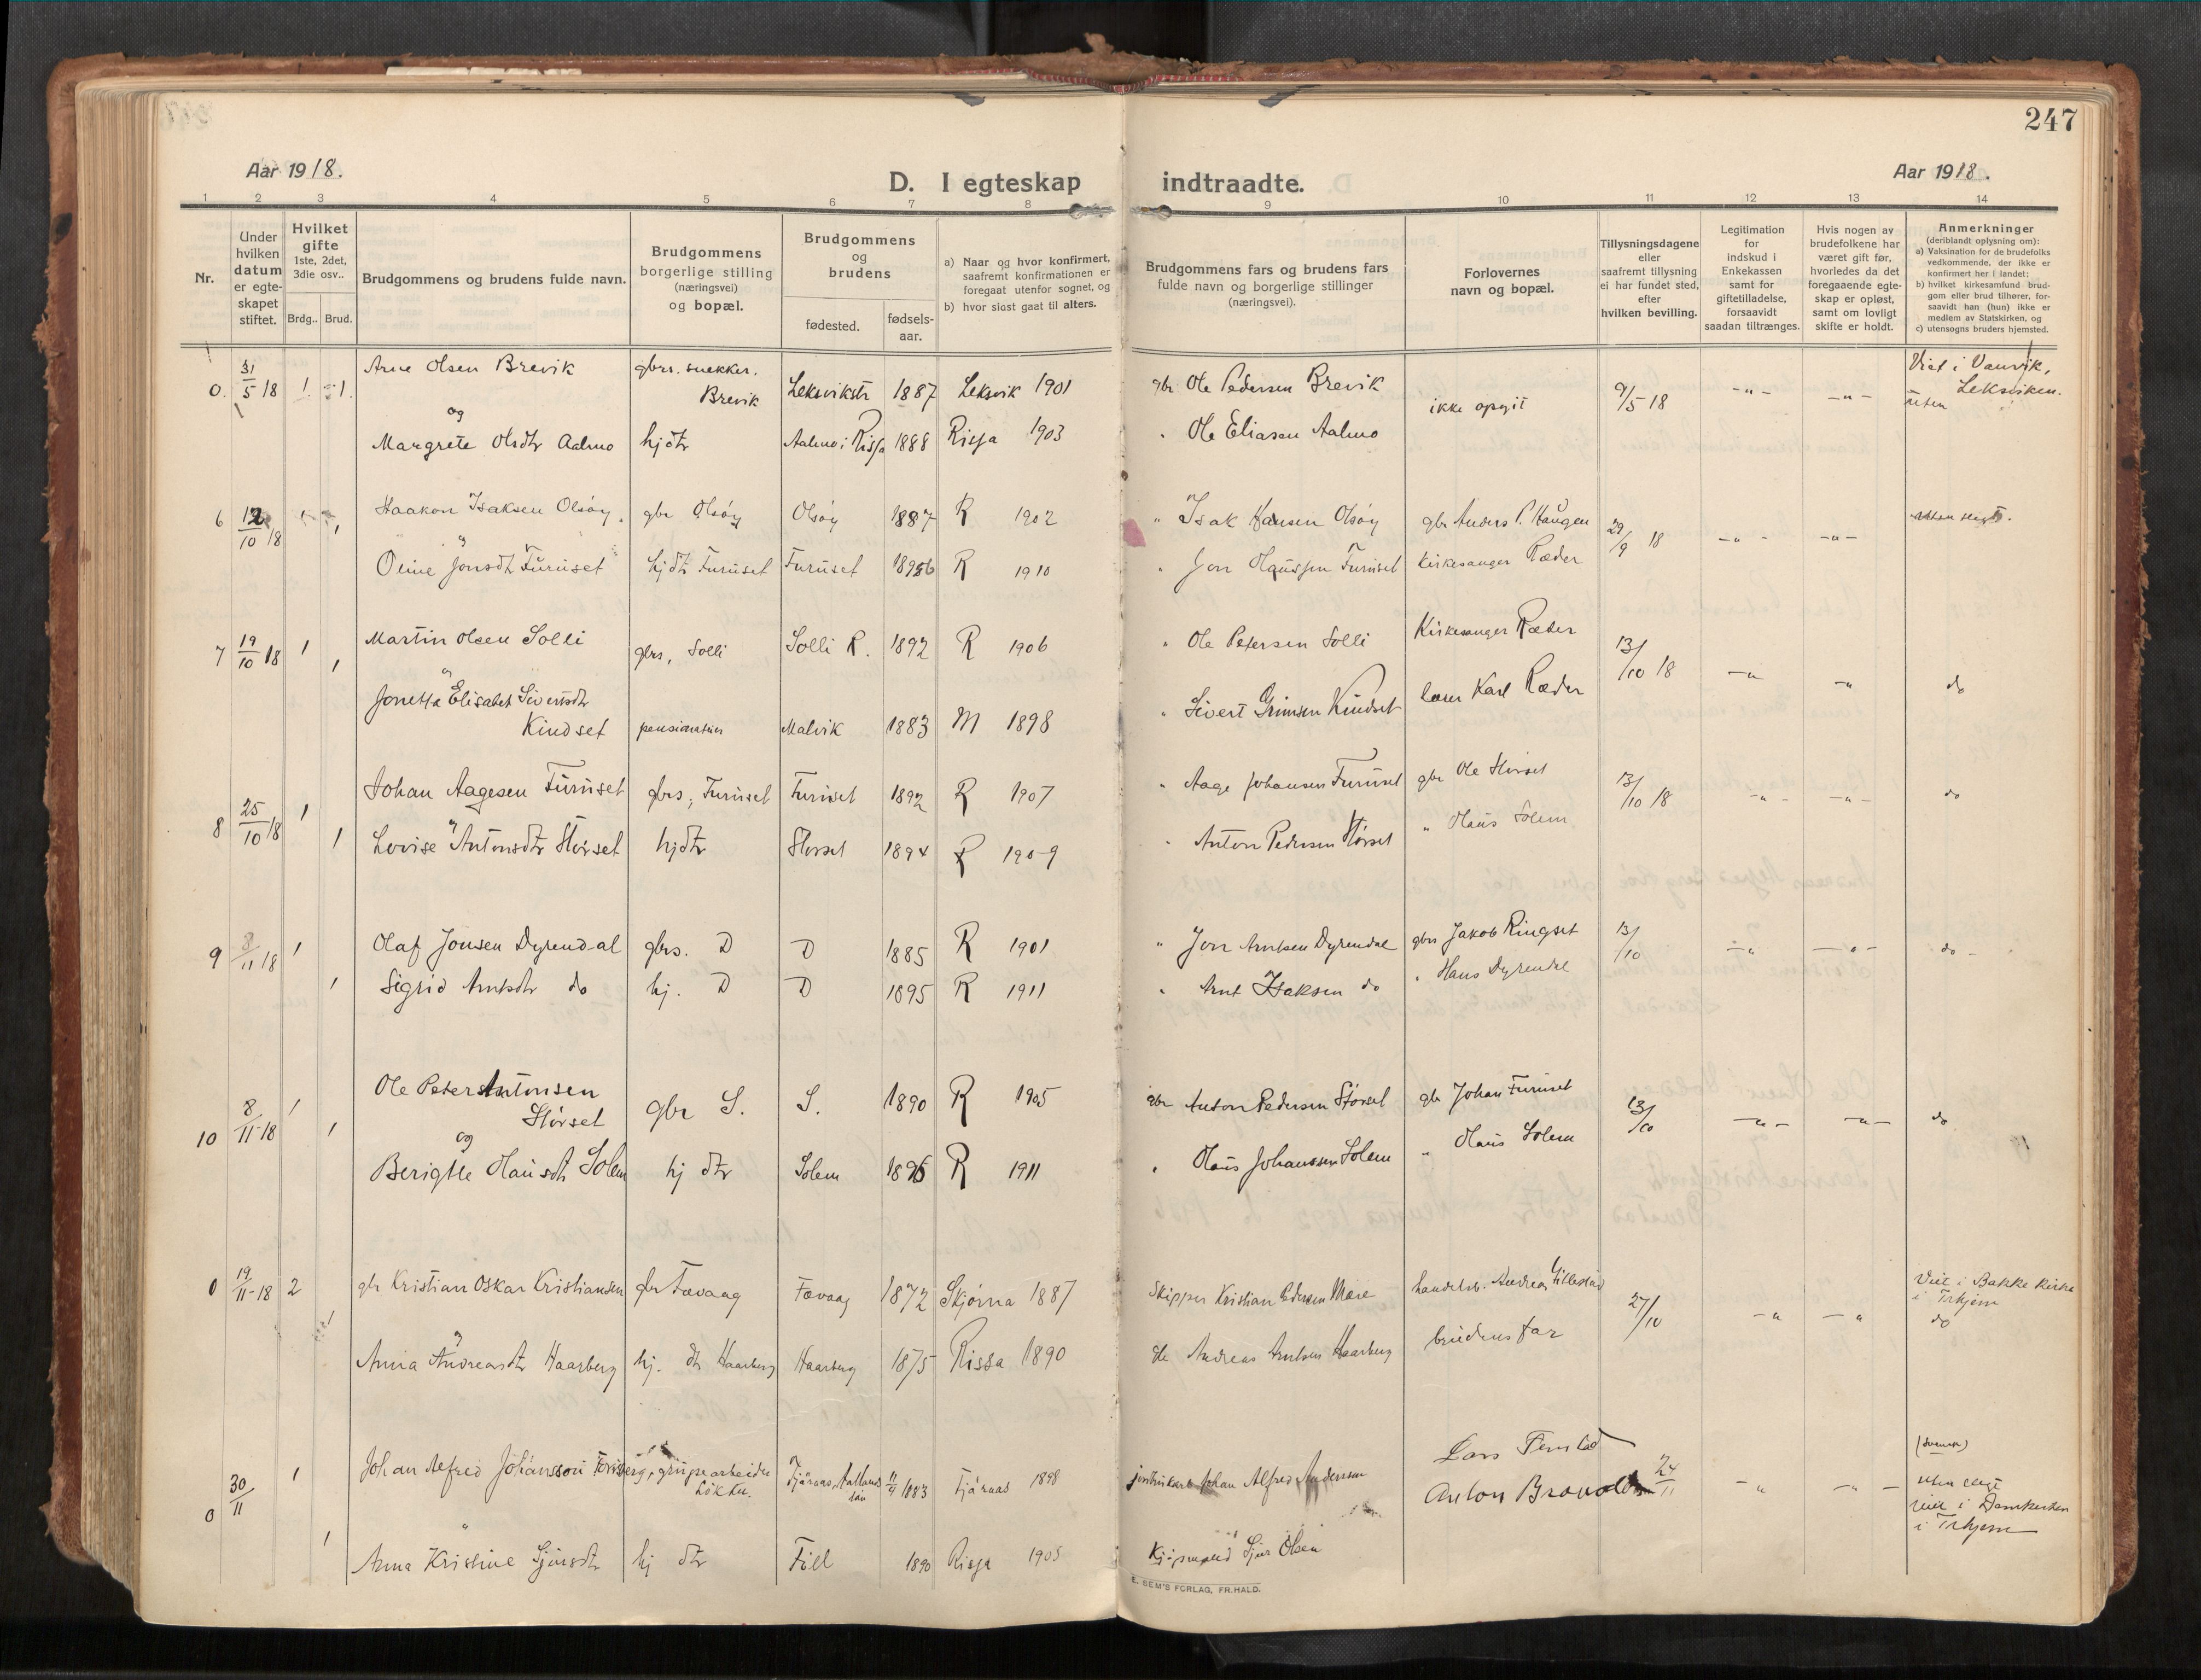 247
Aar 1918.
D. I egteskap indtraadte.
Aar 1918.
1 2 3 4 5 6 7 8 9 10 11 12 13 14
Nr.
Under
hvilken
datum
er egte-
skapet
stiftet.
Hvilket
gifte
1ste, 2det,
3die osv..
Brdg.. Brud.
Brudgommens og brudens fulde navn.
Brudgommens
borgerlige stilling
(næringsvei)
og bopæl.
Brudgommens
og
brudens
fødested.
fødsels-
aar.
a) Naar og hvor konfirmert,
saafremt konfirmationen er
foregaat utenfor sognet, og
b) hvor sidst gaat til alters.
Brudgommens fars og brudens fars
fulde navn og borgerlige stillinger
(næringsvei).
Forlovernes
navn og bopæl.
Tillysningsdagene
eller
saafremt tillysning
ei har fundet sted,
efter
hvilken bevilling.
Legitimation
for
indskud i
Enkekassen
samt for
giftetilladelse,
forsaavidt
saadan tiltrænges.
Hvis nogen av
brudefolkene har
været gift før,
hvorledes da det
foregaaende egte-
skap er opløst,
samt om lovligt
skifte er holdt.
Anmerkninger
(deriblandt oplysning om):
a) Vaksination for de brudefolks
vedkommende, der ikke er
konfirmert her i landet;
b) hvilket kirkesamfund brud-
gom eller brud tilhører, for-
saavidt han (hun) ikke er
medlem av Statskirken, og
c) utensogns bruders hjemsted.
0. 31/5 18 1 1. Arne Olsen Brevik gbrs. snekker. Brevik Leksvikstr 1887 Leksvik 1901 gbr Ole Pedersen Brevik ikke opgit 9/5 18 -"- -"- Viet i Vanvik, Leksviken.
uten
og
Margrete Olsdtr Aalmo hjdtr Aalmo i Rissa 1888 Rissa 1903 " Ole Eliasen Aalmo
6 12/10 18 1 1 Haakon Isaksen Olsøy gbr Olsøy Olsøy 1887 R 1902 " Isak Hansen Olsøy gbr Anders P. Haugen 29/9 18 -"- -"- uten slegt.
Oline Jonsdtr Furuset hjdtr Furuset Furuset 1896 R 1910 " Jon Olaussen Furuset Kirkesanger Ræder
7 19/10 18 1 1 Martin Olsen Solli gbrs, Solli Solli R. 1892 R 1906 " Ole Petersen Solli Kirkesanger Ræder 13/10 18 -"- -"- do
Jonetta Elisabet Sivertsdtr
Kindset Malvik 1883 M 1898 " Sivert Grimsen Kindset lærer Karl Ræder
8 25/10 18 1 1 Johan Aagesen Furuset gbrs, Furuset Furuset 1892 R 1907 " Aage Johansen Furuset gbr Ole Størset 13/10 18 -"- -"- do
Lovise Antonsdtr Størset hjdtr Størset 1894 R 1909 " Anton Pedersen Størset " Olaus Solem
9 8/11 18 1 1 Olaf Jonsen Dyrendal gbrs. D D 1885 R 1901 " Jon Arntsen Dyrendal gbr Jakob Ringset 13/10 -"- -"- do -
Sigrid Arntsdtr do hj. D D 1895 R 1911 " Arnt Isaksen do " Hans Dyrendal
10 8/11-18 1 1 Ole Peter Antonsen
Størset gbr S. S. 1890 R 1905 gbr Anton Pedersen Størset gbr Johan Furuset 13/10 -"- -"- do
og
Berigtte Olausdtr Solem hj dtr Solem 1896 R 1911 " Olaus Johanssen Solem " Olaus Solem
0 19/11-18 2 1 gbr Kristian Oskar Kristiansen gbr Fævaag Fævaag 1872 Skjørna 1887 Skipper Kristian Pedersen handelsb. Andreas 27/10 -"- -"- Viet i Bakke Kirke
i Trhjem
do
Anna Andreasdtr Haarberg hj. dtr Haarberg Haarberg 1875 Rissa 1890 Andreas Arntsen Haarberg brudens far
0 30/11 1 1 Johan Alfred Johansson grubearbeider
Løkken. Fjäraas, Halland 11/4 1883 Fjäraas 1898 Johan Alfred Andersson Lars Fenstad
Anton 24/11 -"- -"- (svensk)
uten slegt
viet i Domkirken
i Trhjem
Anna Kristine Sjursdtr hj dtr Fill 1890 Rissa 1905 Kjøpmand Sjur Olsen
E. SEM'S FORLAG, FR.HALD.